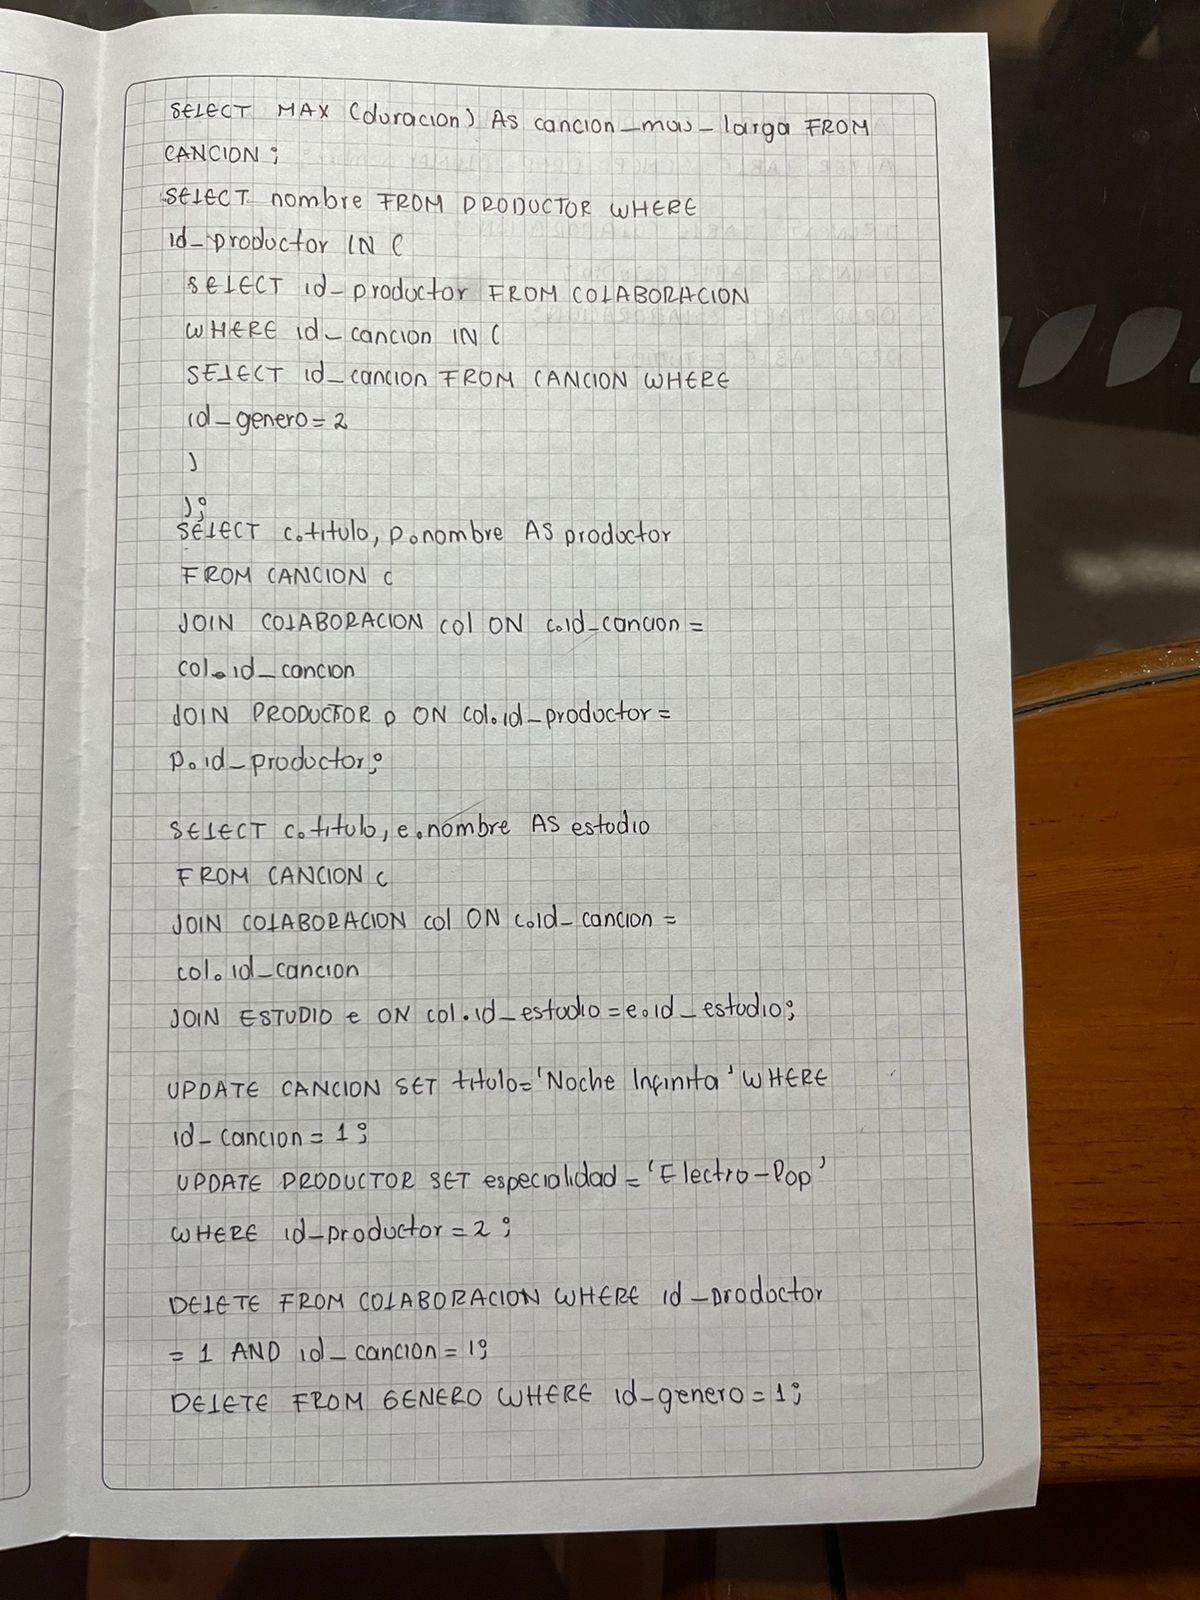 SELECT MAX (duracion) AS cancion_mas_larga FROM
CANCION;
SELECT nombre FROM PRODUCTOR WHERE
id_productor IN (
SELECT id_productor FROM COLABORACION
WHERE id_cancion IN (
SELECT id_cancion FROM CANCION WHERE
id_genero = 2
)
);
SELECT c.titulo, p.nombre AS productor
FROM CANCION c
JOIN COLABORACION col ON c.id_cancion =
col.id_cancion
JOIN PRODUCTOR p ON col.id_productor =
p.id_productor;
SELECT c.titulo, e.nombre AS estudio
FROM CANCION c
JOIN COLABORACION col ON c.id_cancion =
col.id_cancion
JOIN ESTUDIO e ON col.id_estudio = e.id_estudio;
UPDATE CANCION SET titulo = 'Noche Infinita' WHERE
id_cancion = 1;
UPDATE PRODUCTOR SET especialidad = 'Electro-Pop'
WHERE id_productor = 2;
DELETE FROM COLABORACION WHERE id_productor
= 1 AND id_cancion = 1;
DELETE FROM GENERO WHERE id_genero = 1;